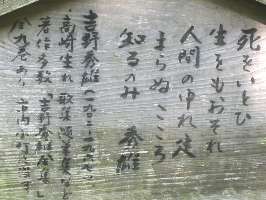 死をいとひ
生をもおそれ
人間の
ゆれ
まらぬこころ
知るのみ 秀雄
吉野秀雄(一九〇二~一九六七)
高崎生れ 歌集
著作多数「吉野秀雄全集」
全九巻あり